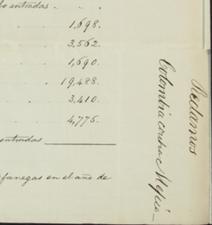 entradas
1,698.
3,562.
1,690.
19,428.
3,410.
4,775.
entradas
fanegas en el año de
Reclamos
Colombia contra Mejico